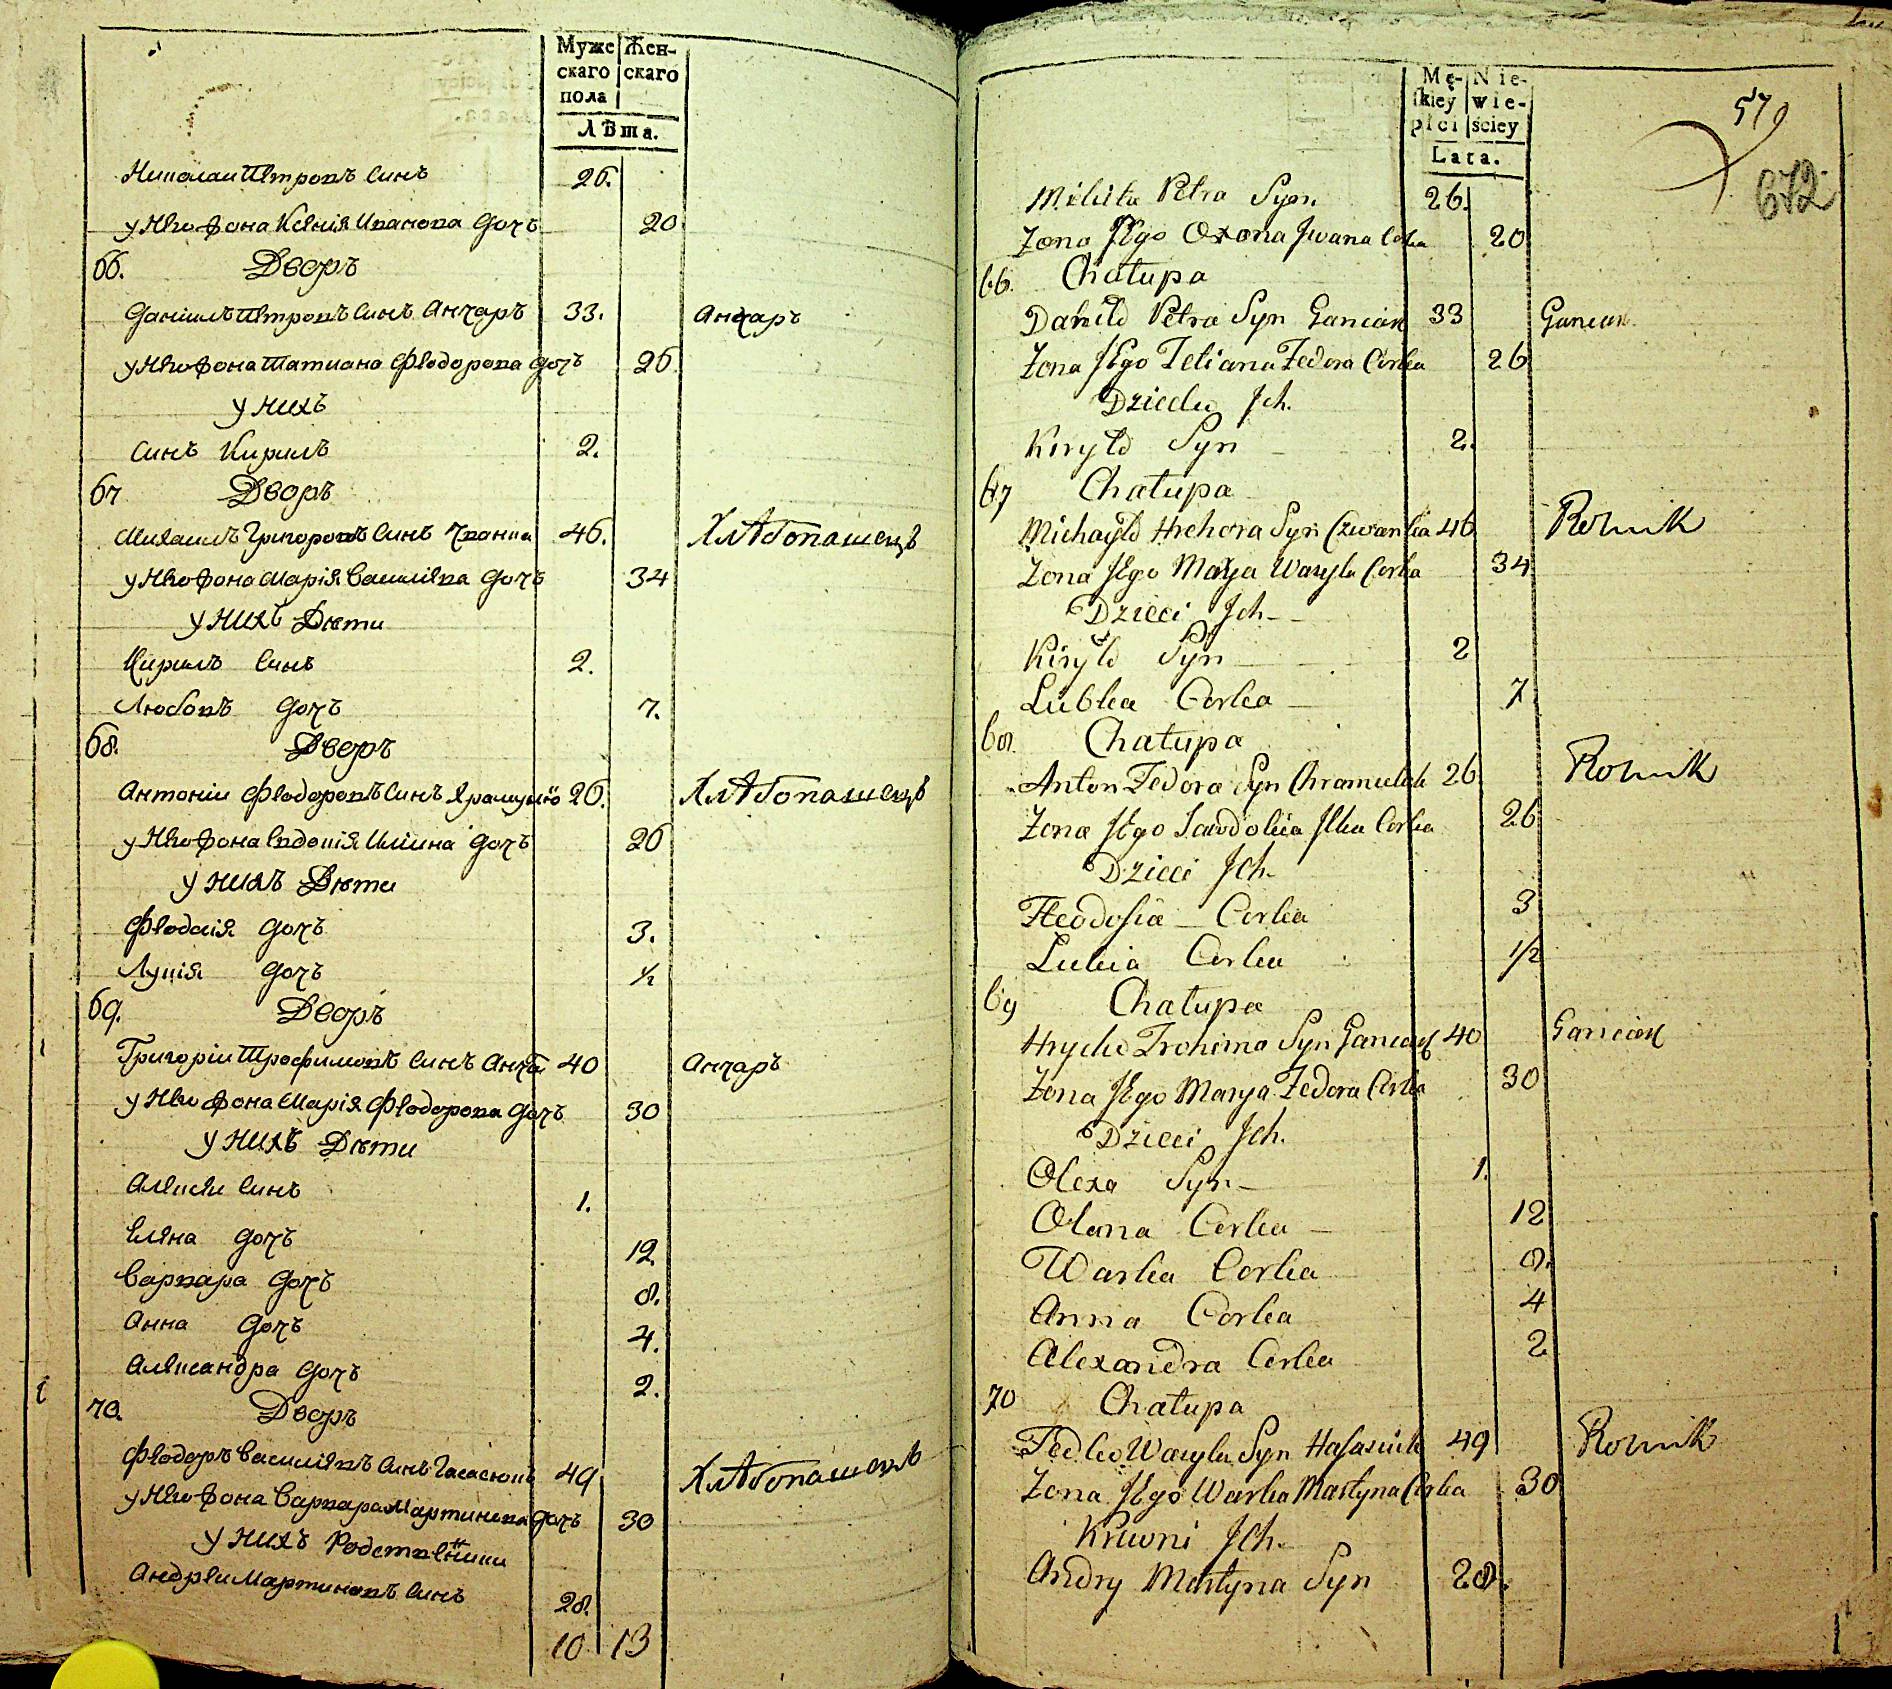 Муже Жен-
скаго скаго
пола
Лѣта.
Николаи Петровъ Синъ 26.
у Него Жона Ксенія Иванова Дочъ 20
66. Дворъ
Даніилъ Петровъ Синъ Анчаръ 33. Анчаръ
у Него Жона Татиана Феодорова Дочъ 26
у Нихъ
Синъ Кирилъ 2.
67 Дворъ
Михаилъ Григоровъ Синъ 46. Хлѣбопашецъ
у Него Жона Марія Василіева Дочъ 34
у Нихъ Дѣти
Кирилъ Синъ 2.
Любовъ Дочъ 7.
68. Дворъ
Антоніи Феодоровъ Синъ 26. Хлѣбопашецъ
у Него Жона Евдокія Иліина Дочъ 26
у Нихъ Дѣти
Феодосія Дочъ 3.
Лукія Дочъ 1/2
69. Дворъ
Григоріи Трофимовъ Синъ 40 Анчаръ
у Него Жона Марія Феодорова Дочъ 30
у Нихъ Дѣти
Алексѣи Синъ 1.
Елена Дочъ 12
Варвара Дочъ 8.
Анна Дочъ 4.
Александра Дочъ 2.
70. Дворъ
Феодоръ Василіевъ Синъ Гасасюкъ 49 Хлѣбопашецъ
у Него Жона Варвара Мартинова Дочъ 30
у Нихъ Родственики
Андреи Мартиновъ Синъ 28.
10 13
Mę- Nie-
skiey wie-
płci ściey
Lata.
579
672
Mikita Petra Syn 26.
Zona Jego Oxona Jwana Corka 20
66. Chałupa
Daniło Petra Syn Ganczar 33 Ganczar
Zona Jego Tetiana Fedora Corka 26
Dziecko Jch.
Kiryło Syn 2.
67 Chałupa
Michayło Hrehora Syn 46 Rolnik
Zona Jego Marya Wasyla Corka 34
Dzieci Jch
Kiryło Syn 2
Lubka Corka 7
68. Chałupa
Anton Fedora Syn 26 Rolnik
Zona Jego Jawdokia Jlka Corka 26
Dzieci Jch
Feodosia Corka 3
Lukia Corka 1/2
69 Chałupa
Hryćko Trohima Syn Ganczar 40 Ganczar
Zona Jego Marya Fedora Corka 30
Dzieci Jch.
Olexa Syn 1.
Olana Corka 12
Warka Corka 8.
Anna Corka 4
Alexandra Corka 2
70 Chałupa
Fedko Wasyla Syn Hasasiuk 49 Rolnik
Zona Jego Warka Martyna Corka 30
Krewni Jch.
Andry Martyna Syn 28.